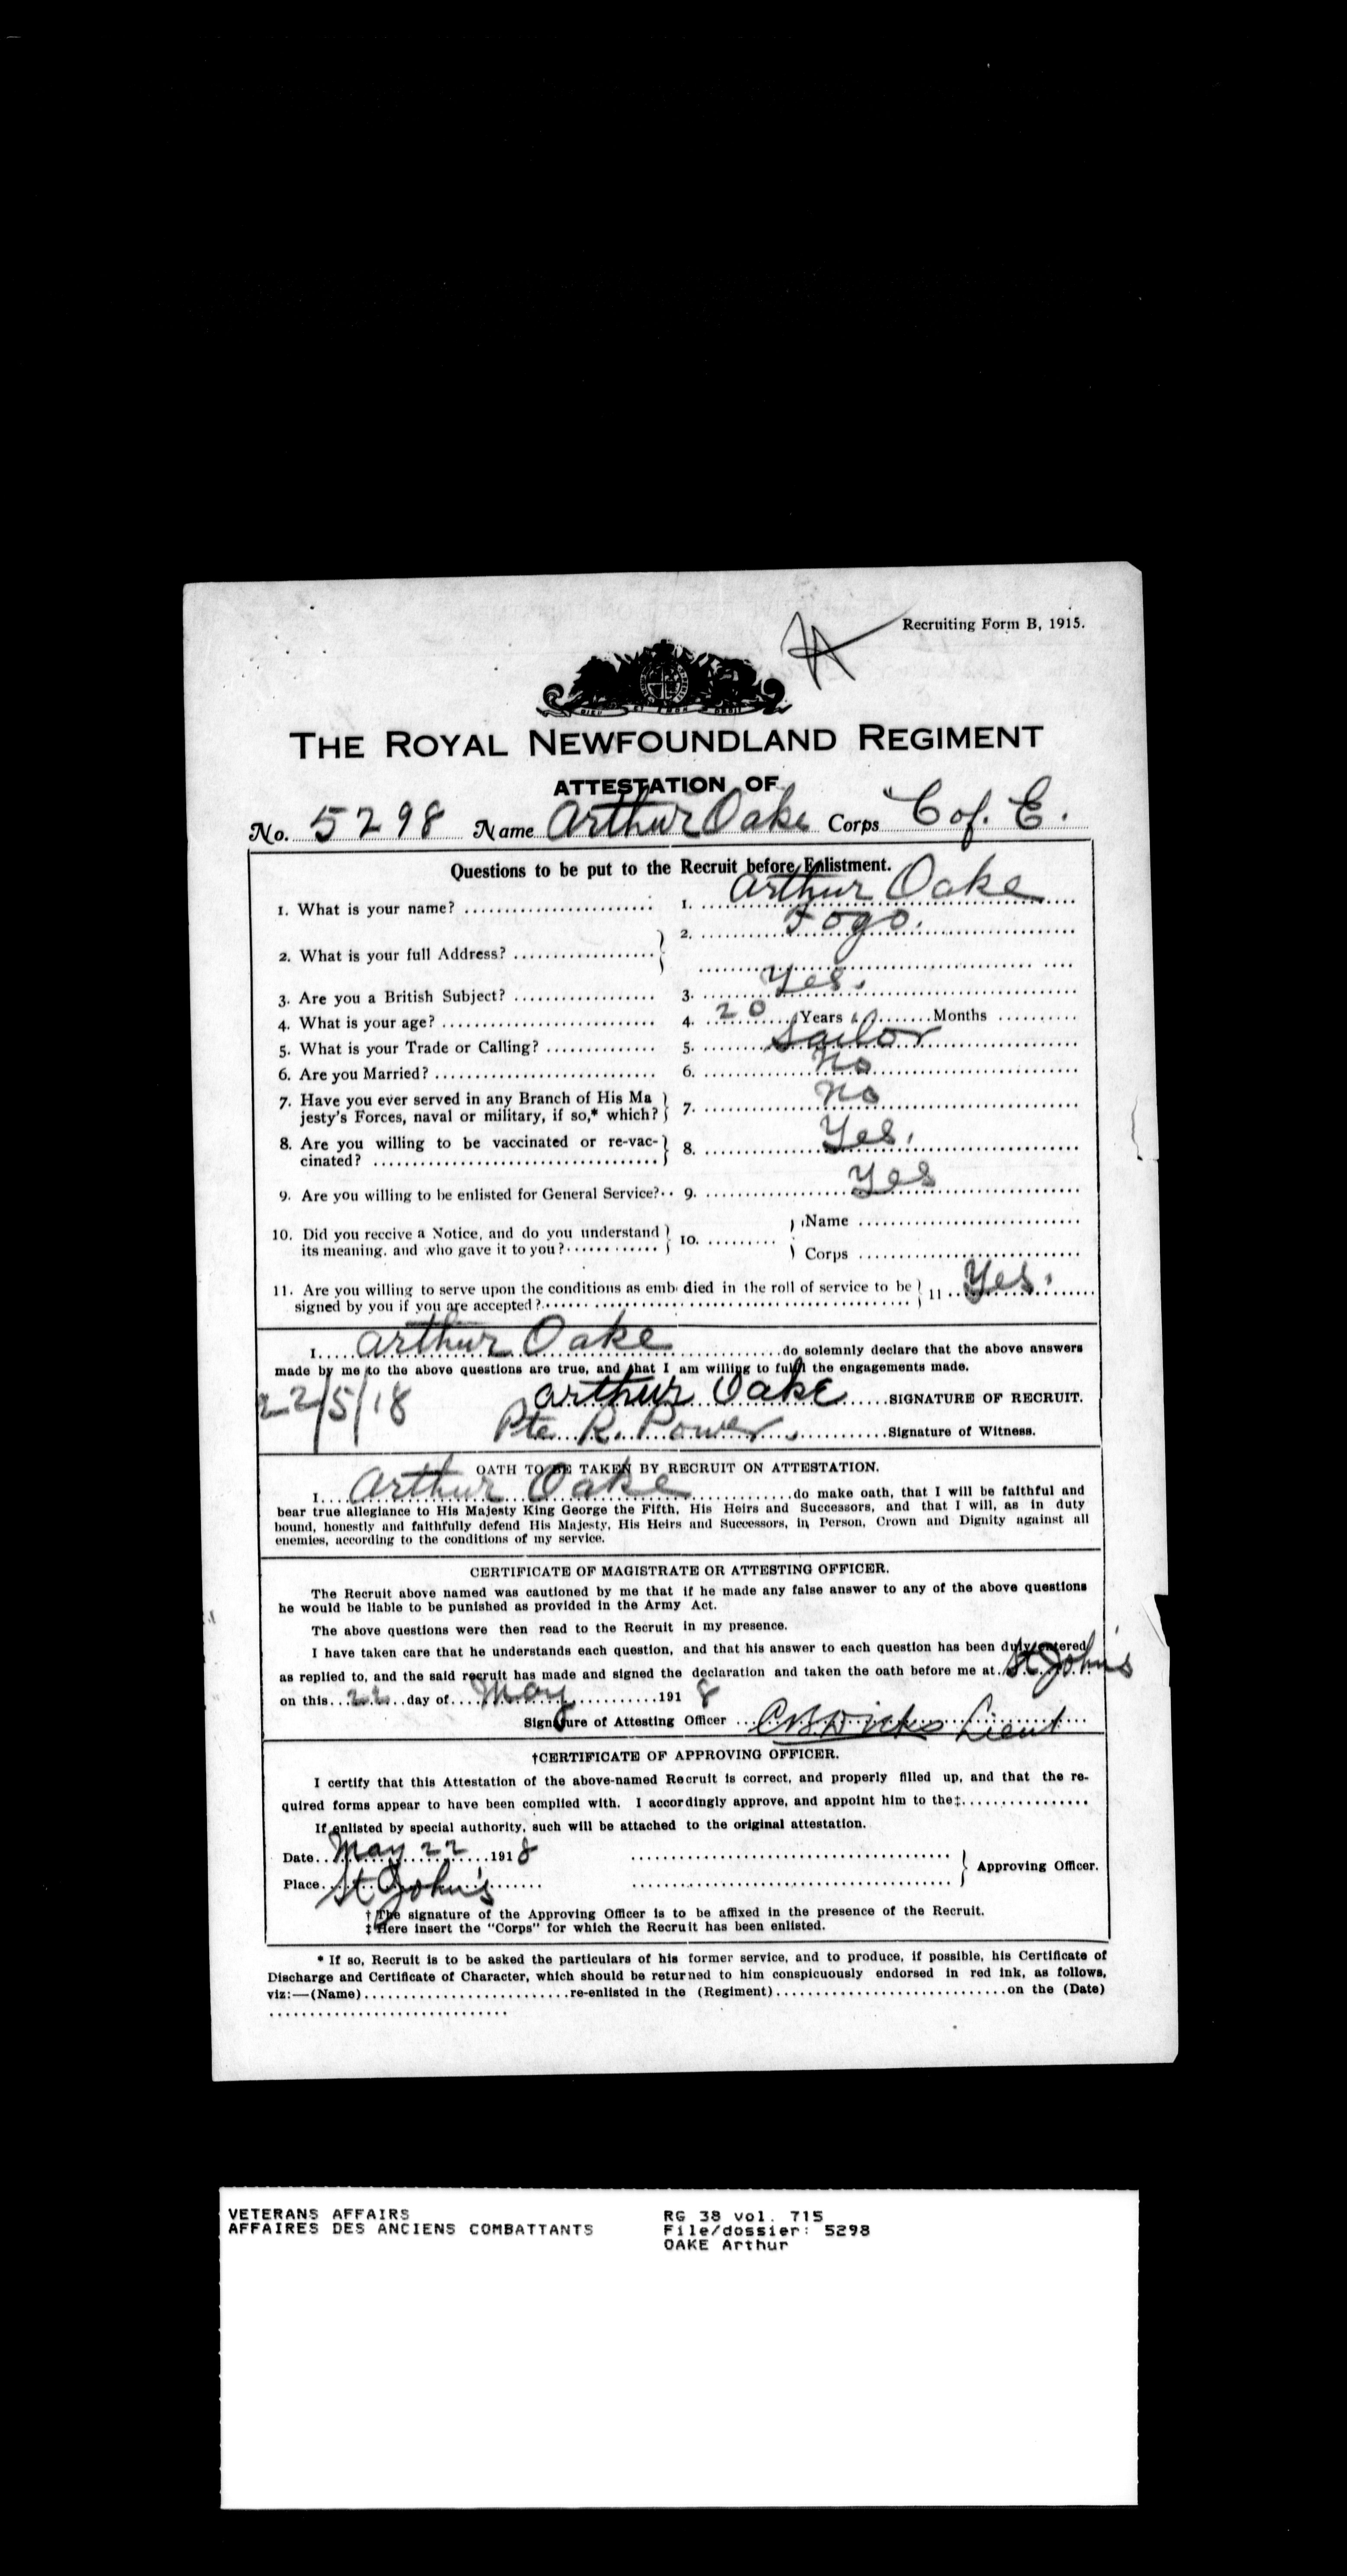 Recruiting Form B, 1915.
DIEU ET MON DROIT
THE ROYAL NEWFOUNDLAND REGIMENT
ATTESTATION OF
No. 5298 Name Arthur Oake Corps C of. E.
Questions to be put to the Recruit before Enlistment.
1. What is your name? 1. Arthur Oake
2. What is your full Address? 2. Fogo.
3. Are you a British Subject? 3. Yes.
4. What is your age? 4. 20 Years Months
5. What is your Trade or Calling? 5. Sailor
6. Are you Married? 6. No
7. Have you ever served in any Branch of His Ma
jesty's Forces, naval or military, if so,* which? 7. No
8. Are you willing to be vaccinated or re-vac-
cinated? 8. Yes.
9. Are you willing to be enlisted for General Service? 9. Yes
10. Did you receive a Notice, and do you understand
its meaning, and who gave it to you? 10. Name
Corps
11. Are you willing to serve upon the conditions as emb died in the roll of service to be
signed by you if you are accepted? 11 Yes.
I Arthur Oake do solemnly declare that the above answers
made by me to the above questions are true, and that I am willing to fulfil the engagements made.
22/5/18 Arthur Oake SIGNATURE OF RECRUIT.
Pte R. Power Signature of Witness.
OATH TO BE TAKEN BY RECRUIT ON ATTESTATION.
I Arthur Oake do make oath, that I will be faithful and
bear true allegiance to His Majesty King George the Fifth, His Heirs and Successors, and that I will, as in duty
bound, honestly and faithfully defend His Majesty, His Heirs and Successors, in Person, Crown and Dignity against all
enemies, according to the conditions of my service.
CERTIFICATE OF MAGISTRATE OR ATTESTING OFFICER.
The Recruit above named was cautioned by me that if he made any false answer to any of the above questions
he would be liable to be punished as provided in the Army Act.
The above questions were then read to the Recruit in my presence.
I have taken care that he understands each question, and that his answer to each question has been duly entered
as replied to, and the said recruit has made and signed the declaration and taken the oath before me at St John's
on this 22 day of May 1918
Signature of Attesting Officer C B Dicks Lieut
†CERTIFICATE OF APPROVING OFFICER.
I certify that this Attestation of the above-named Recruit is correct, and properly filled up, and that the re-
quired forms appear to have been complied with. I accordingly approve, and appoint him to the‡
If enlisted by special authority, such will be attached to the original attestation.
Date May 22 1918
Approving Officer.
Place St John's
† The signature of the Approving Officer is to be affixed in the presence of the Recruit.
‡ Here insert the "Corps" for which the Recruit has been enlisted.
* If so, Recruit is to be asked the particulars of his former service, and to produce, if possible, his Certificate of
Discharge and Certificate of Character, which should be returned to him conspicuously endorsed in red ink, as follows,
viz:—(Name) re-enlisted in the (Regiment) on the (Date)
VETERANS AFFAIRS RG 38 vol. 715
AFFAIRES DES ANCIENS COMBATTANTS File/dossier: 5298
OAKE Arthur